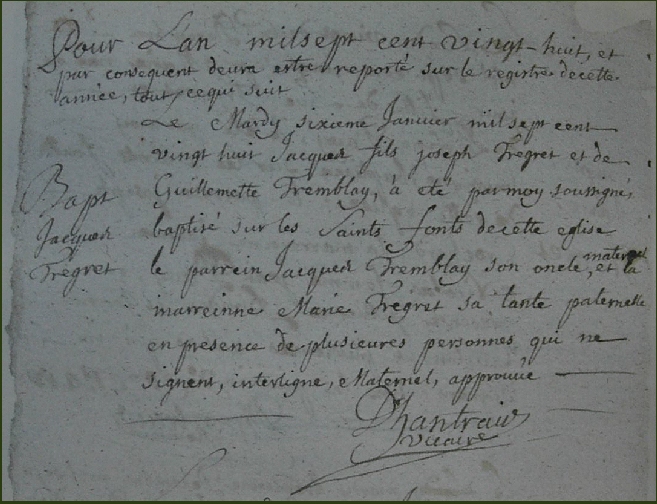 Pour Lan milsept cent vingt-huit, et
par consequent devra estre reporté sur le registre decette
année, tout cequi suit
Le Mardy sixieme Janvier milsept cent
vingt huit Jacques fils joseph Tregret et de
Guillemette Tremblay, à eté parmoy soussigné,
Bapt
Jacques
Tregret
baptisé sur les Saints fonts decette eglise
le parrein Jacques Tremblay son oncle, maternel et la
marreinne Marie Tregret sa tante paternelle
en presence de plusieures personnes qui ne
signent, interligne, Maternel, approuvée
Dhantraiv
vicaire